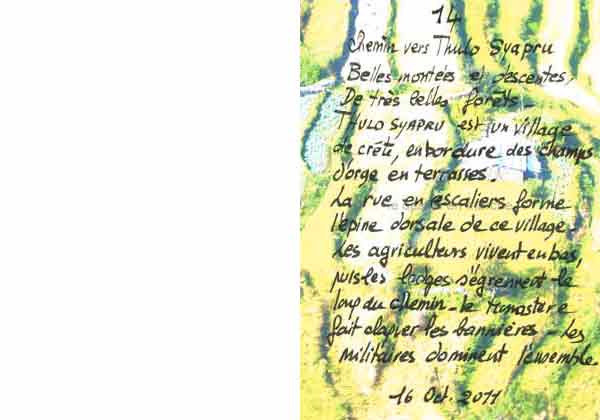 14
Chemin vers Thulo Syapru
Belles montées et descentes,
De très belles forêts.
THULO SYAPRU est un village
de crête, en bordure des champs
d'orge en terrasses.
La rue en escaliers forme
l'épine dorsale de ce village.
Les agriculteurs vivent en bas,
puis les lodges s'égrennent le
long du chemin - le Monastère
fait claquer les bannières - Les
militaires dominent l'ensemble.
16 Oct. 2011